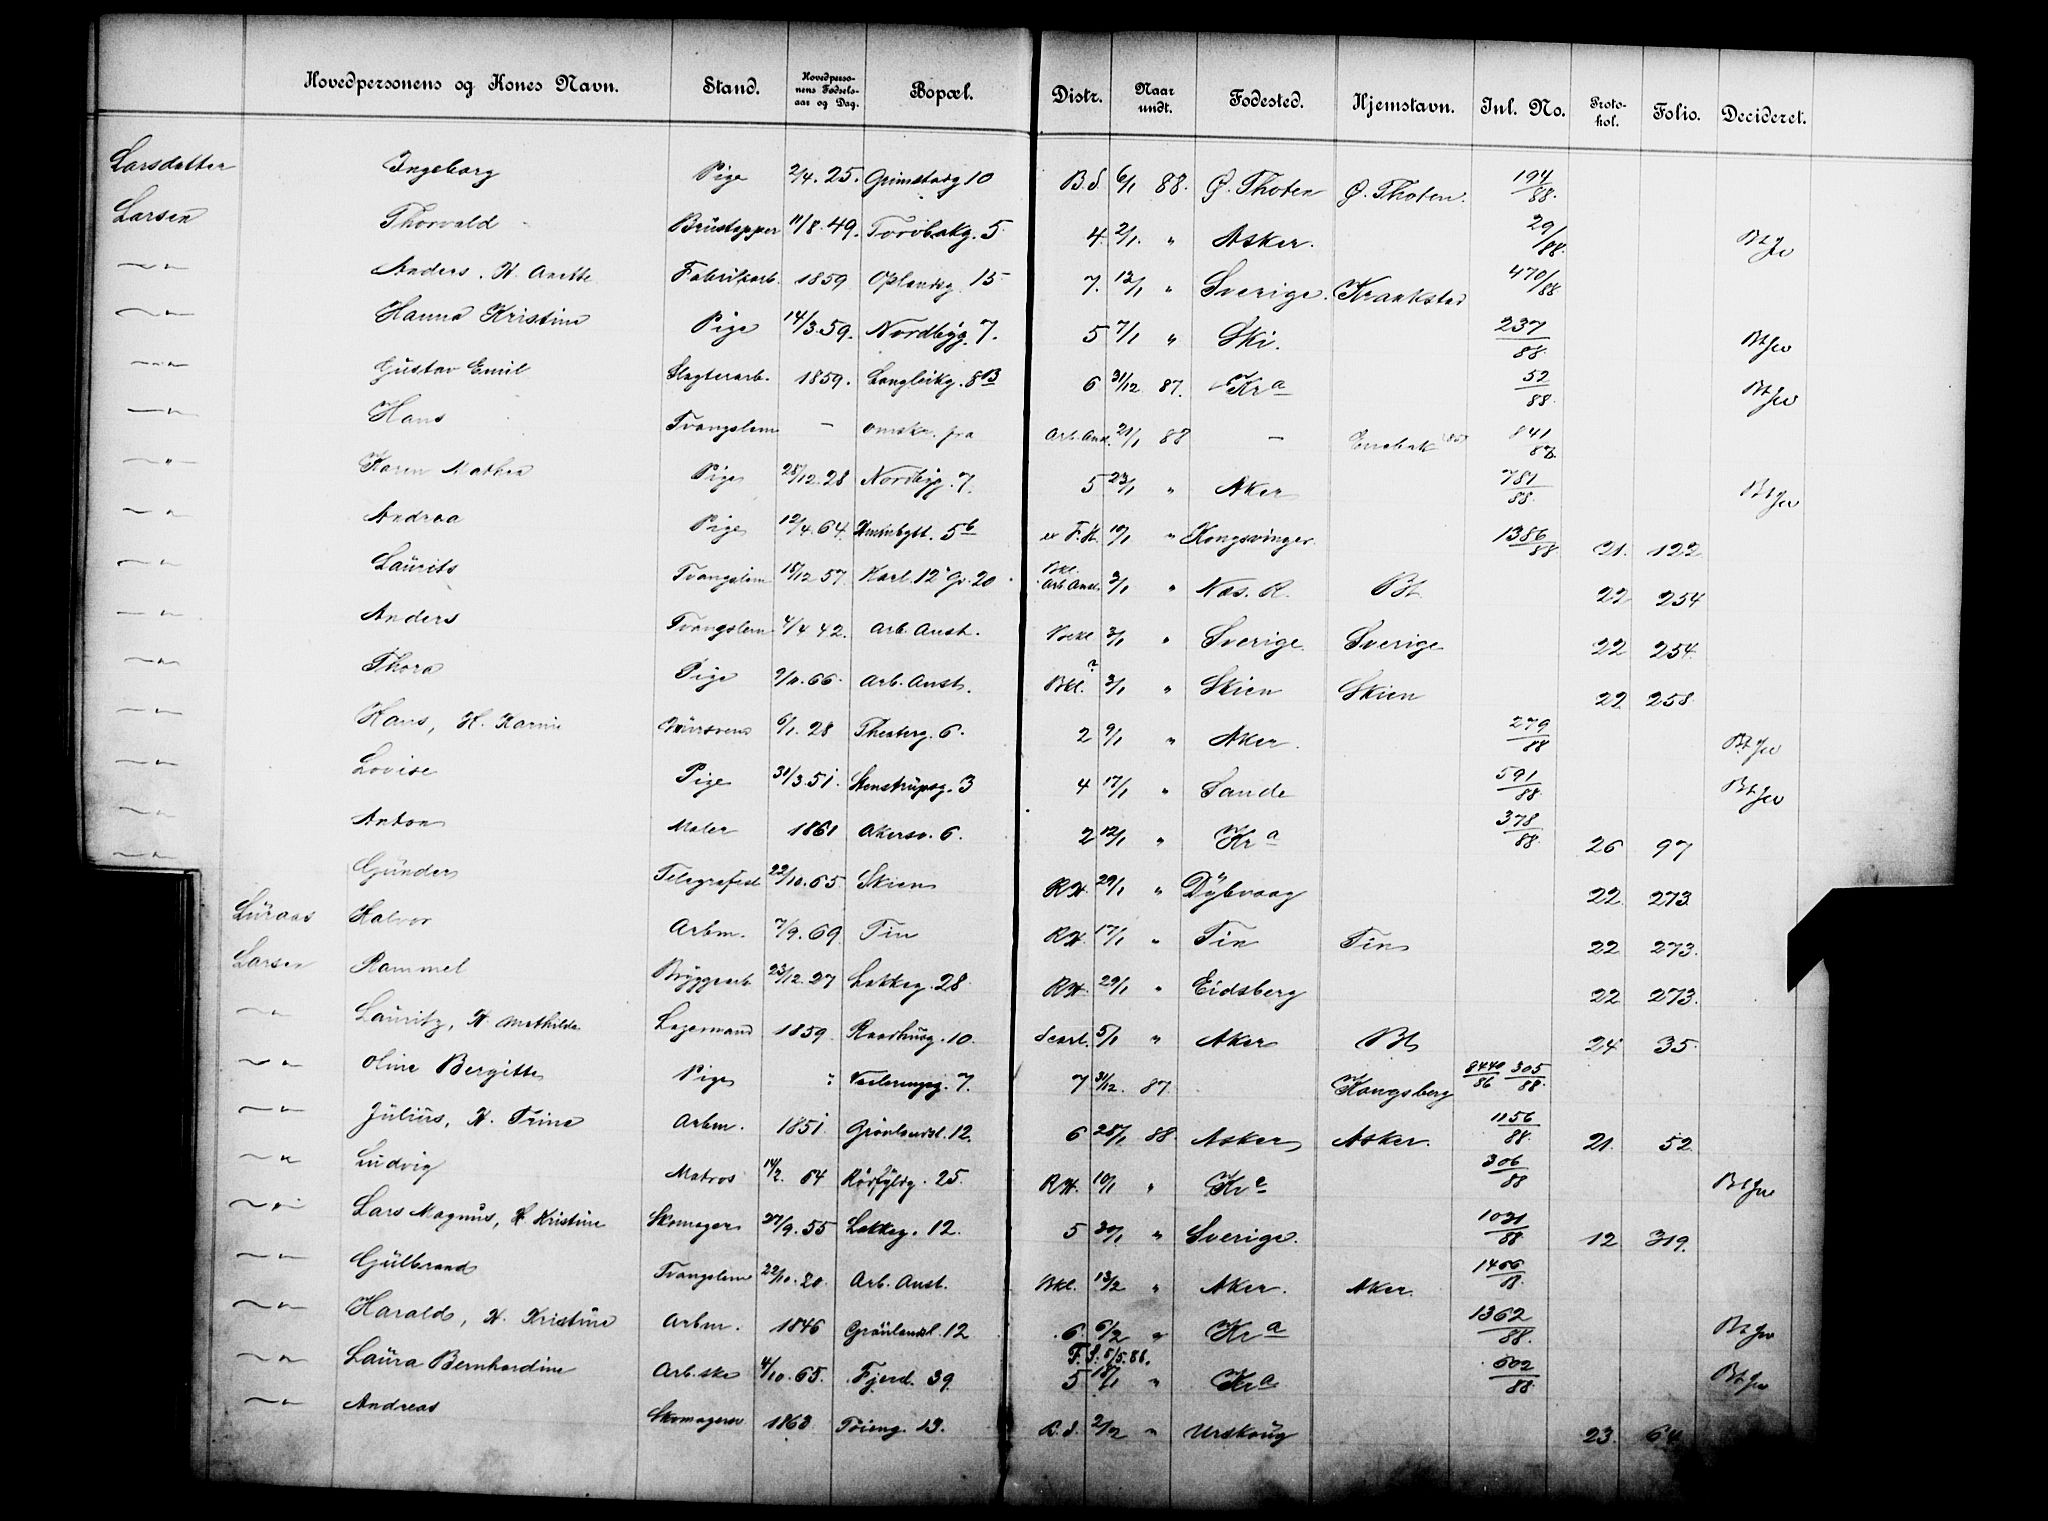 Hovedpersonens og Kones Navn. Stand. Hovedpersonens Fødselsaar og Dag. Bopæl. Distr. Naar undt. Fødested. Hjemstavn. Inl. No. Protokol. Folio. Decideret.
Larsdatter Ingeborg Pige 2/4. 25. Grimstadg 10 B.S. 6/1 88. Ø. Thoten Ø. Thoten. 194/88.
Larsen Thorvald Brüstapper 11/8. 49. Torvbakg. 5 4. 2/1. " Asker. 29/88. Bt Jw
—"— Anders. H. Anette Fabrikarb. 1859 Oplandsg. 15 7. 12/1 " Sverige. Kraakstad 470/88
—"— Hanna Kristine Pige 14/3. 59. Nordbyg. 7. 5 7/1 " Ski. 237/88 Bt Jw
—"— Gustav Emil Slagterarb. 1859. Langleikg. 8 B 6 31/12 87. Kra 52/88. Bt Jw
—"— Hans Tvangslem — omskr. fra Arb. Anst. 21/1 88 — Enebak 841/87.
—"— Karen Mathea Pige 28/12. 28 Nordbyg. 7. 5 23/1 " Aker 781/88 Bt Jw
—"— Andrea Pige 12/4. 64. 5 b 10/1 " Kongsvinger. 1386/88. 21. 122
—"— Laurits Tvangslem 15/12 57. Karl. 12 Gr. 20 Bkl. Arb. Anst. 3/1 " Næs. R. Bt 22 254
—"— Anders Tvangslem 4/4 42. Arb. Anst. Bkl 3/1 " Sverige Sverige 22 254.
—"— Thora Pige 9/11. 66. Arb. Anst. Bkl. ? 3/1 " Skien Skien 22 258
—"— Hans, H. Karine 6/1. 28 Theaterg. 6. 2 9/1 " Aker. 279/88 Bt Jw
—"— Lovise Pige 31/3. 51. Stenstrupsg. 3 4 17/1 " Sande 591/88. Bt Jw
—"— Anton Maler 1861 Akersv. 6. 2 12/1 " Kra 378/88. 26 97
—"— Gunder Telegrafist 22/10. 65 Skien RH. 20/1 " Dybvaag 22. 273.
Luraas Halvor Arbm. 7/9. 69. Tin RH. 17/1 " Tin Tin 22 273.
Larsen Rammel Bryggearb. 23/12. 27 Lakkeg. 28. RH. 20/1 " Eidsberg 22 273.
—"— Lauritz, H. Mathilde Lagermand 1859. Raadhusg. 10. Scarl. 5/1 " Aker Bt 24 35.
—"— Oline Bergitte Pige " Vaalerengg. 7. 7 31/12. 87. Kongsberg 8440/86 305/88.
—"— Julius, H. Trine Arbm. 1851 Grønlandsl. 12. 6 28/1 88. Asker Asker. 1156/88. 21. 52
—"— Ludvig Matros 14/2. 64 Rørfyldg. 25. RH. 10/1 " Kra 306/88 Bt Jw
—"— Lars Magnus, H Kristine Skomager 27/9. 55 Lakkeg. 12. 5 30/1 " Sverige. 1031/88 12 319.
—"— Gulbrand Tvangslem 22/10. 20. Arb. Anst. Bkl. 13/2 " Aker. Aker.
—"— Harald, H. Kristine Arbm. 1846 Grønlandsl. 12 6. 6/2 " Kra 1362/88. Bt Jw
—"— Laura Bernhardine Arb.ske 4/10. 65. Fjerd. 39. F. S. 5/5. 88. 5 18/1 " Kra 602/88 Bt Jw
—"— Andreas Skomagersv 1863 Tøieng. 13. B.S. 2/2 " Urskoug 23. 64